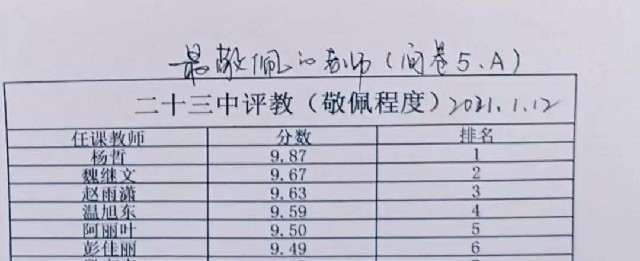 最敬佩的教师(问卷5、A)
二十三中评教(敬佩程度)2021.1.12
任课教师 分数 排名
杨哲 9.87 1
魏继文 9.67 2
赵雨潇 9.63 3
温旭东 9.59 4
阿丽叶 9.50 5
彭佳丽 9.49 6